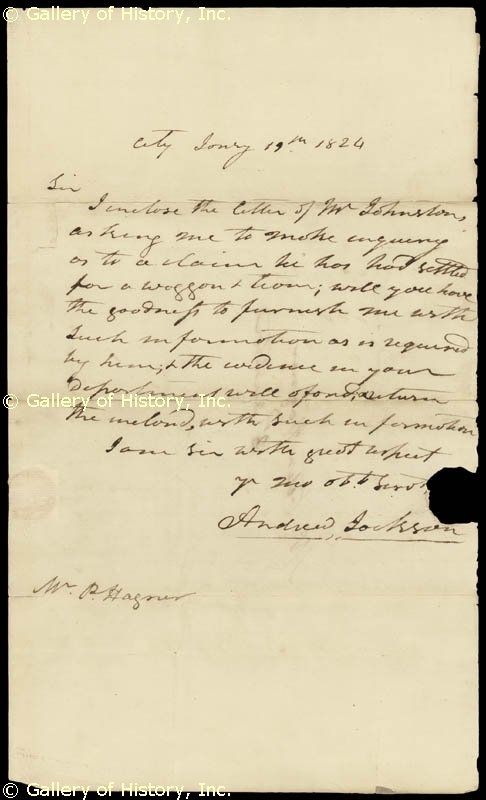 © Gallery of History, Inc.
City Jany 19th 1824
Sir
I inclose the letter of Mr Johnston,
asking me to make enquiry
as to a claim he has had settled
for a waggon & team; will you have
the goodness to furnish me with
such information as is required
by him, & the evidence in your
Department will afford, & return
© Gallery of History, Inc.
the inclosed, with such information
I am Sir with great respect
yr mo obt Servt,
Andrew Jackson
Mr P. Hagner
© Gallery of History, Inc.